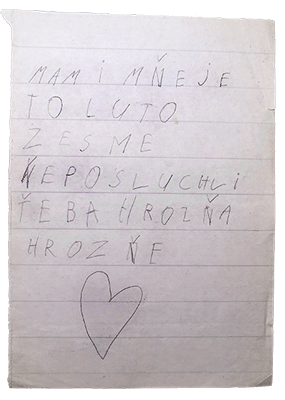 MAMI MŇEJE
TO LUTO
ZESME
NEPOSLUCHLI
ŤEBA HROZŇA
HROZŇE